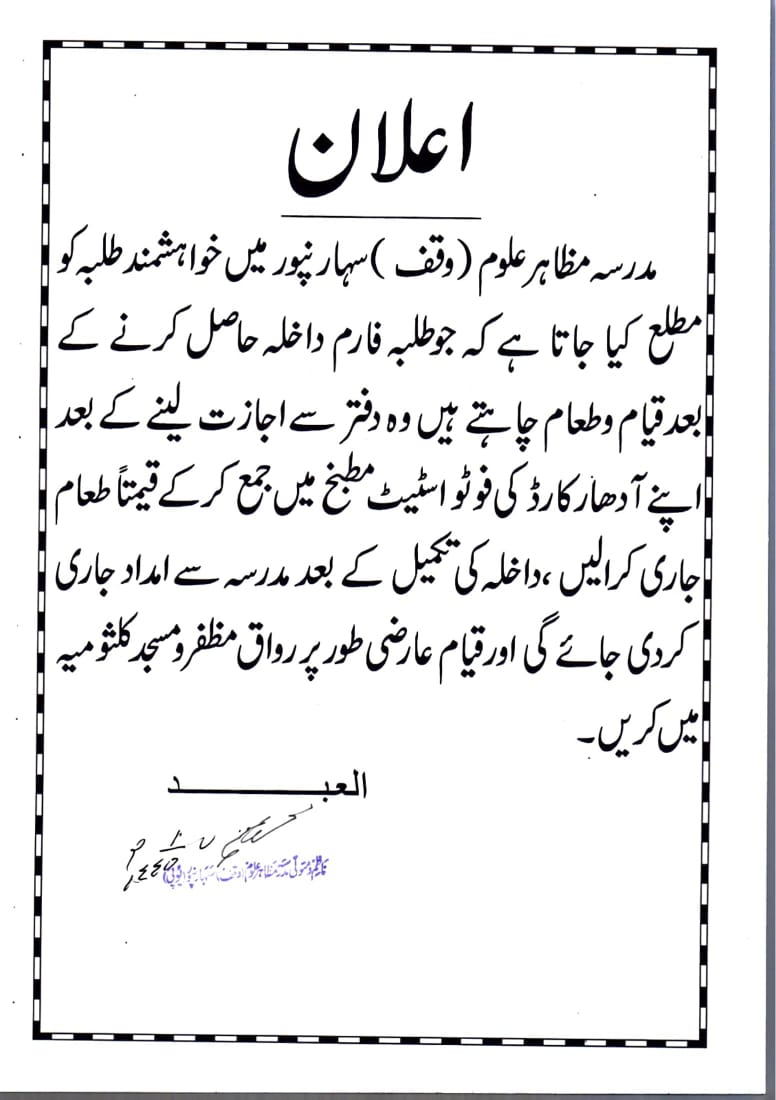 اعلان
مدرسہ مظاہر علوم (وقف) سہارنپور میں خواہشمند طلبہ کو
مطلع کیا جاتا ہے کہ جو طلبہ فارم داخلہ حاصل کرنے کے
بعد قیام و طعام چاہتے ہیں وہ دفتر سے اجازت لینے کے بعد
اپنے آدھار کارڈ کی فوٹو اسٹیٹ مطبخ میں جمع کر کے قیمتاً طعام
جاری کرالیں، داخلہ کی تکمیل کے بعد مدرسہ سے امداد جاری
کردی جائے گی اور قیام عارضی طور پر رواق مظفر و مسجد کلثومیہ
میں کریں۔
العبد
ناظم و متولی مدرسہ مظاہر علوم (وقف) سہارنپور (یوپی)